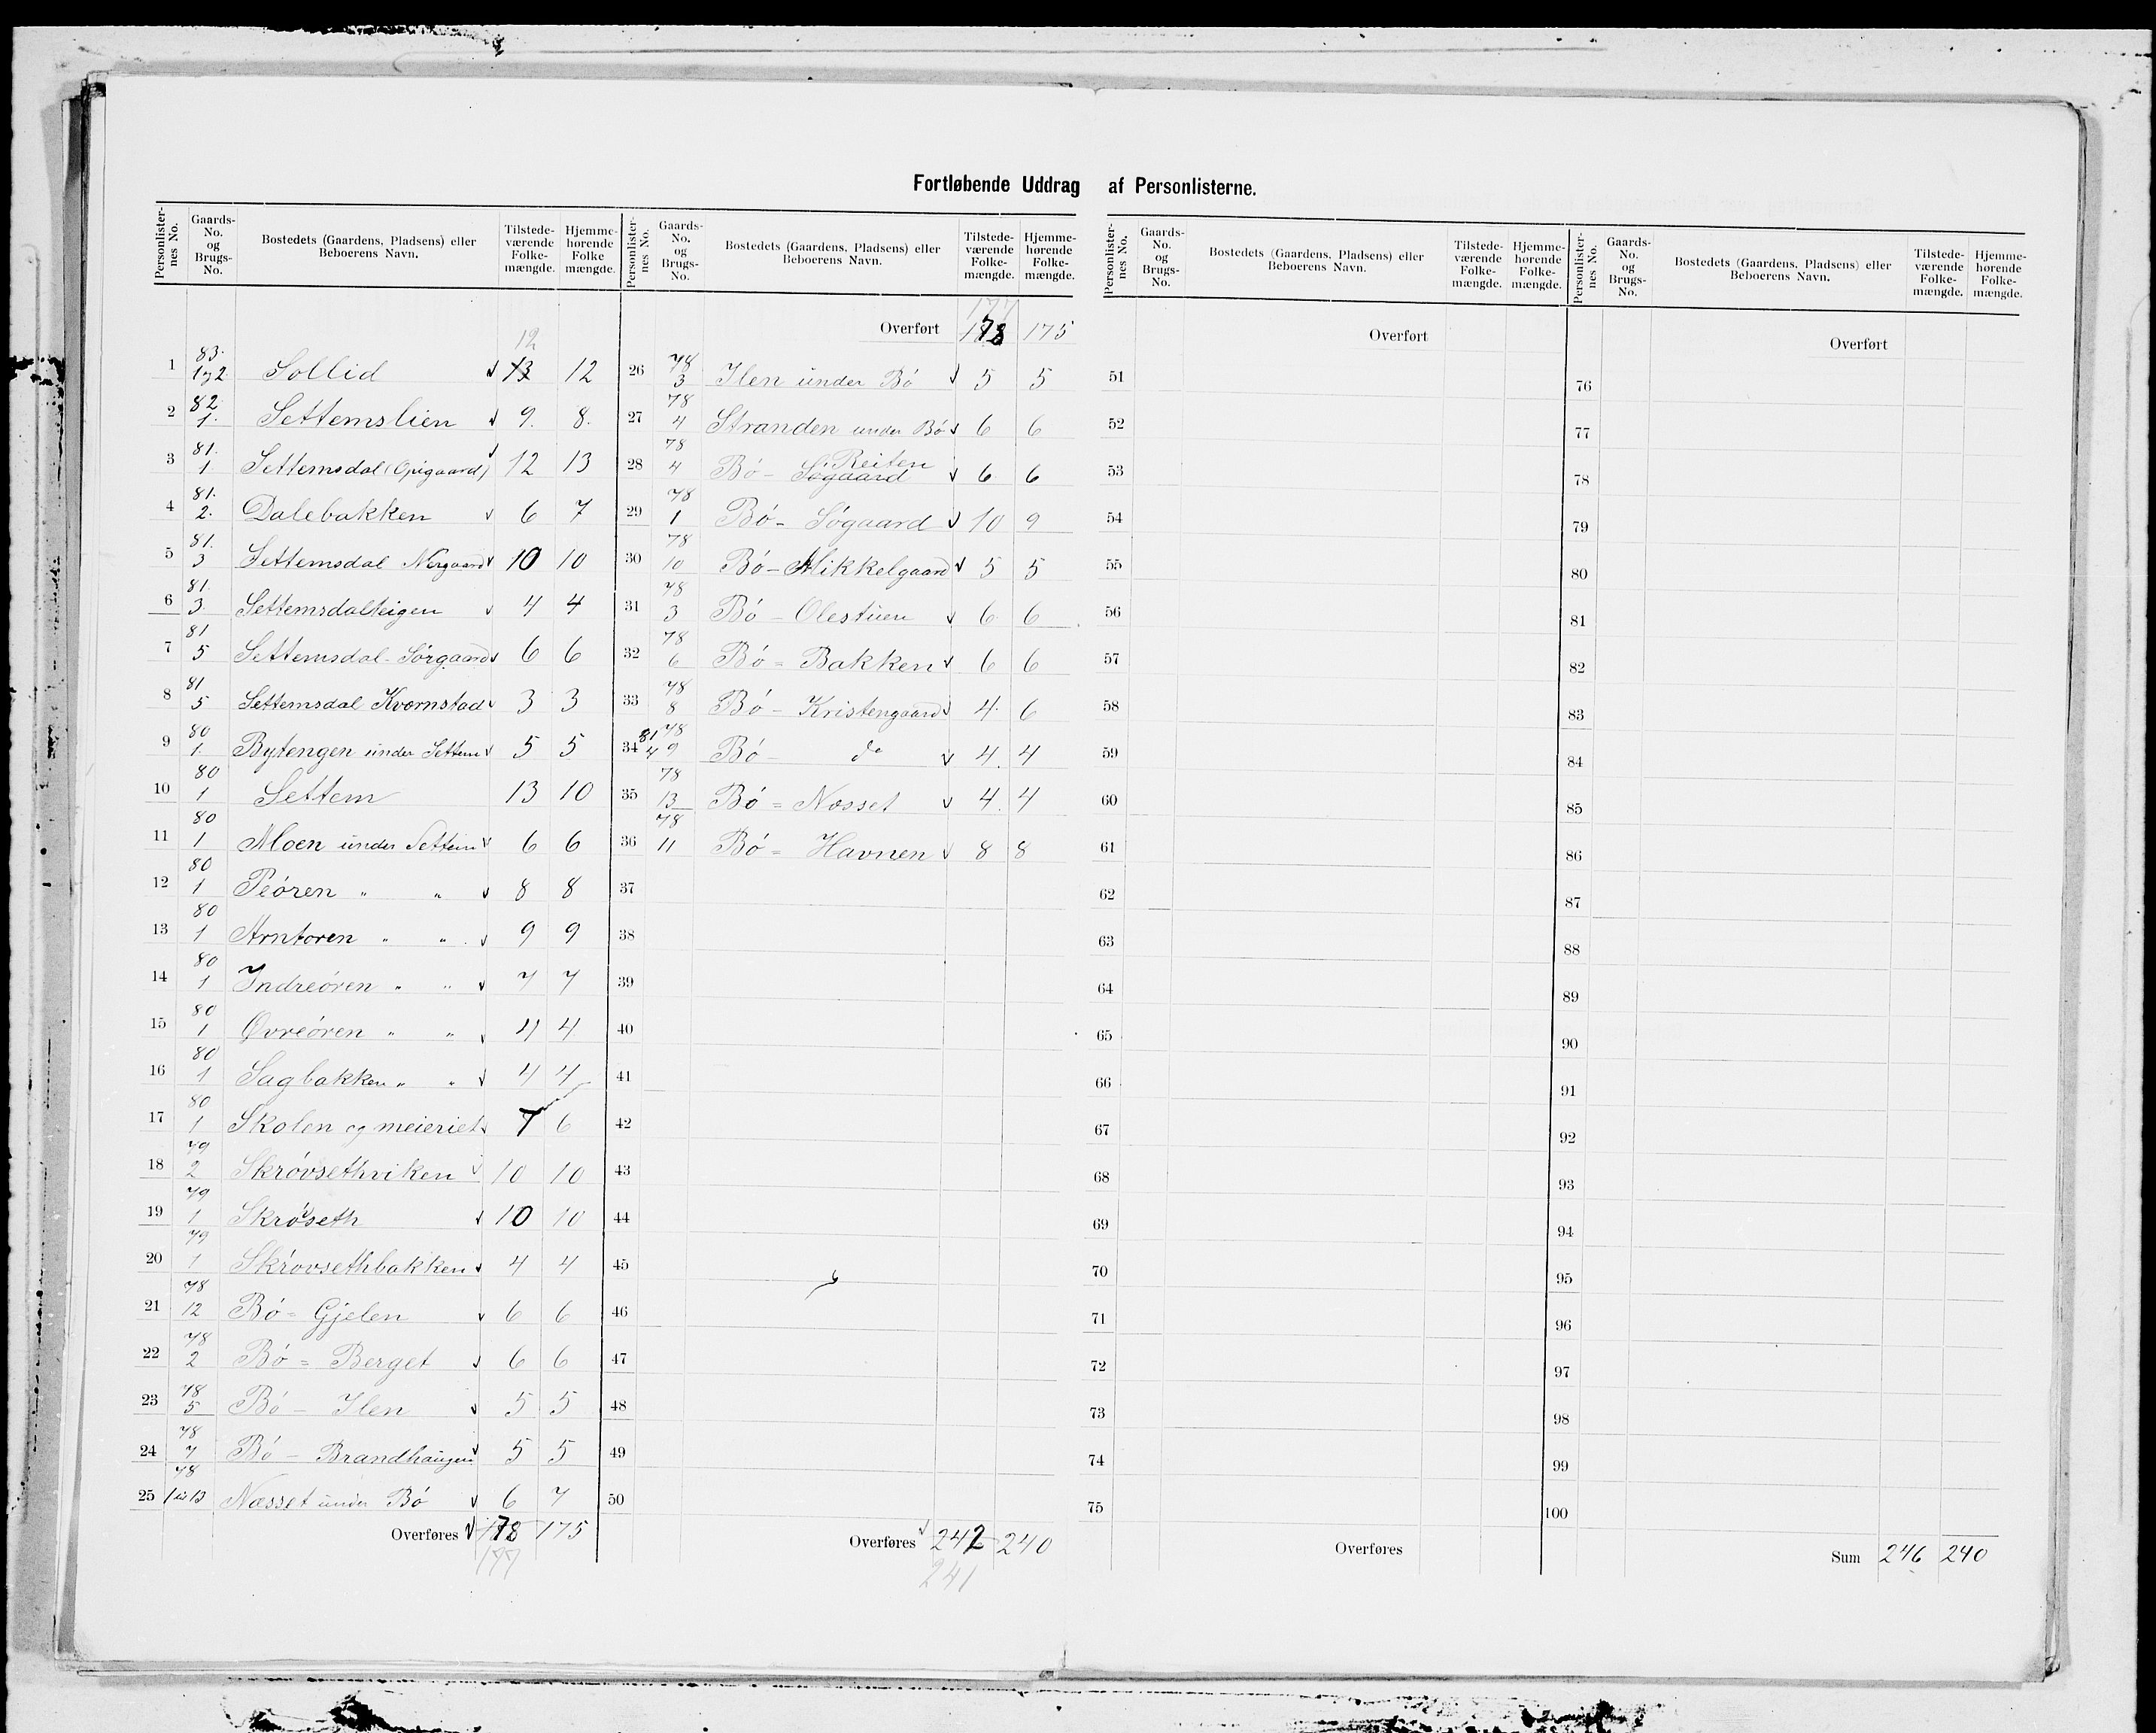 Fortløbende Uddrag af Personlisterne.
Personlister-nes No. Gaards-No. og Brugs-No. Bostedets (Gaardens, Pladsens) eller Beboerens Navn. Tilstede-værende Folke-mængde. Hjemme-hørende Folke mængde.
12
1 83. 1 og 2 Sollid 13 12
2 82. 1. Settemslien 9. 8.
3 81. 1 Settemsdal (Opigaard) 12 13
4 81. 2. Dalebakken 6 7
5 81. 3 Settemsdal Nergaard 10 10
6 81. 3 Settemsdalteigen 4 4
7 81 5 Settemsdal-Sørgaard 6 6
8 81 5 Settemsdal Kvornstad 3 3
9 80 1. Bytengen under Settem 5 5
10 80 1 Settem 13 10
11 80 1 Moen under Settem 6 6
12 80 1 Peóren " " 8 8
13 80 1 Arntoren " " 9 9
14 80 1 Indreóren " " 7 7
15 80 1 Øvreóren " " 4 4
16 80 1 Sagbakken " " 4 4
17 80 1 Skolen og meieriet 7 6
18 79 2 Skróvsethviken 10 10
19 79 1 Skróvseth 10 10
20 79 1 Skróvsethbakken 4 4
21 78 12 Bó = Gjelen 6 6
22 78 2 Bó = Berget 6 6
23 78 5 Bó - Ilen 5 5
24 78 7 Bó - Brandhaugen 5 5
25 78 Næsset under Bó 6 7
Overføres 178 175
177
Personlister-nes No. Gaards-No. og Brugs-No. Bostedets (Gaardens, Pladsens) eller Beboerens Navn. Tilstede-værende Folke-mængde. Hjemme-hørende Folke-mængde.
177
Overført 178 175
26 78 3 Ilen under Bó 5 5
27 78 4 Stranden under Bó 6 6
28 78 4 Bó - Søgaard Reiten 6 6
29 78 1 Bó - Søgaard 10 9
30 78 10 Bó - Mikkelgaard 5 5
31 78 3 Bó - Olestuen 6 6
32 78 6 Bó = Bakken 6 6
33 78 8 Bó - Kristengaard 4 6
34 81 4 78 9 Bó - do 4. 4
35 78 13 Bó = Næsset 4. 4
36 78 11 Bó = Havnen 8 8
37
38
39
40
41
42
43
44
45
46
47
48
49
50
Overføres 242 240
241
Personlister-nes No. Gaards-No. og Brugs-No. Bostedets (Gaardens, Pladsens) eller Beboerens Navn. Tilstede-værende Folke-mængde. Hjemme-hørende Folke-mængde.
Overført
51
52
53
54
55
56
57
58
59
60
61
62
63
64
65
66
67
68
69
70
71
72
73
74
75
Overføres
Personlister-nes No. Gaards-No. og Brugs-No. Bostedets (Gaardens, Pladsens) eller Beboerens Navn. Tilstede-værende Folke-mængde. Hjemme-hørende Folke-mængde.
Overført
76
77
78
79
80
81
82
83
84
85
86
87
88
89
90
91
92
93
94
95
96
97
98
99
100
Sum 246 240